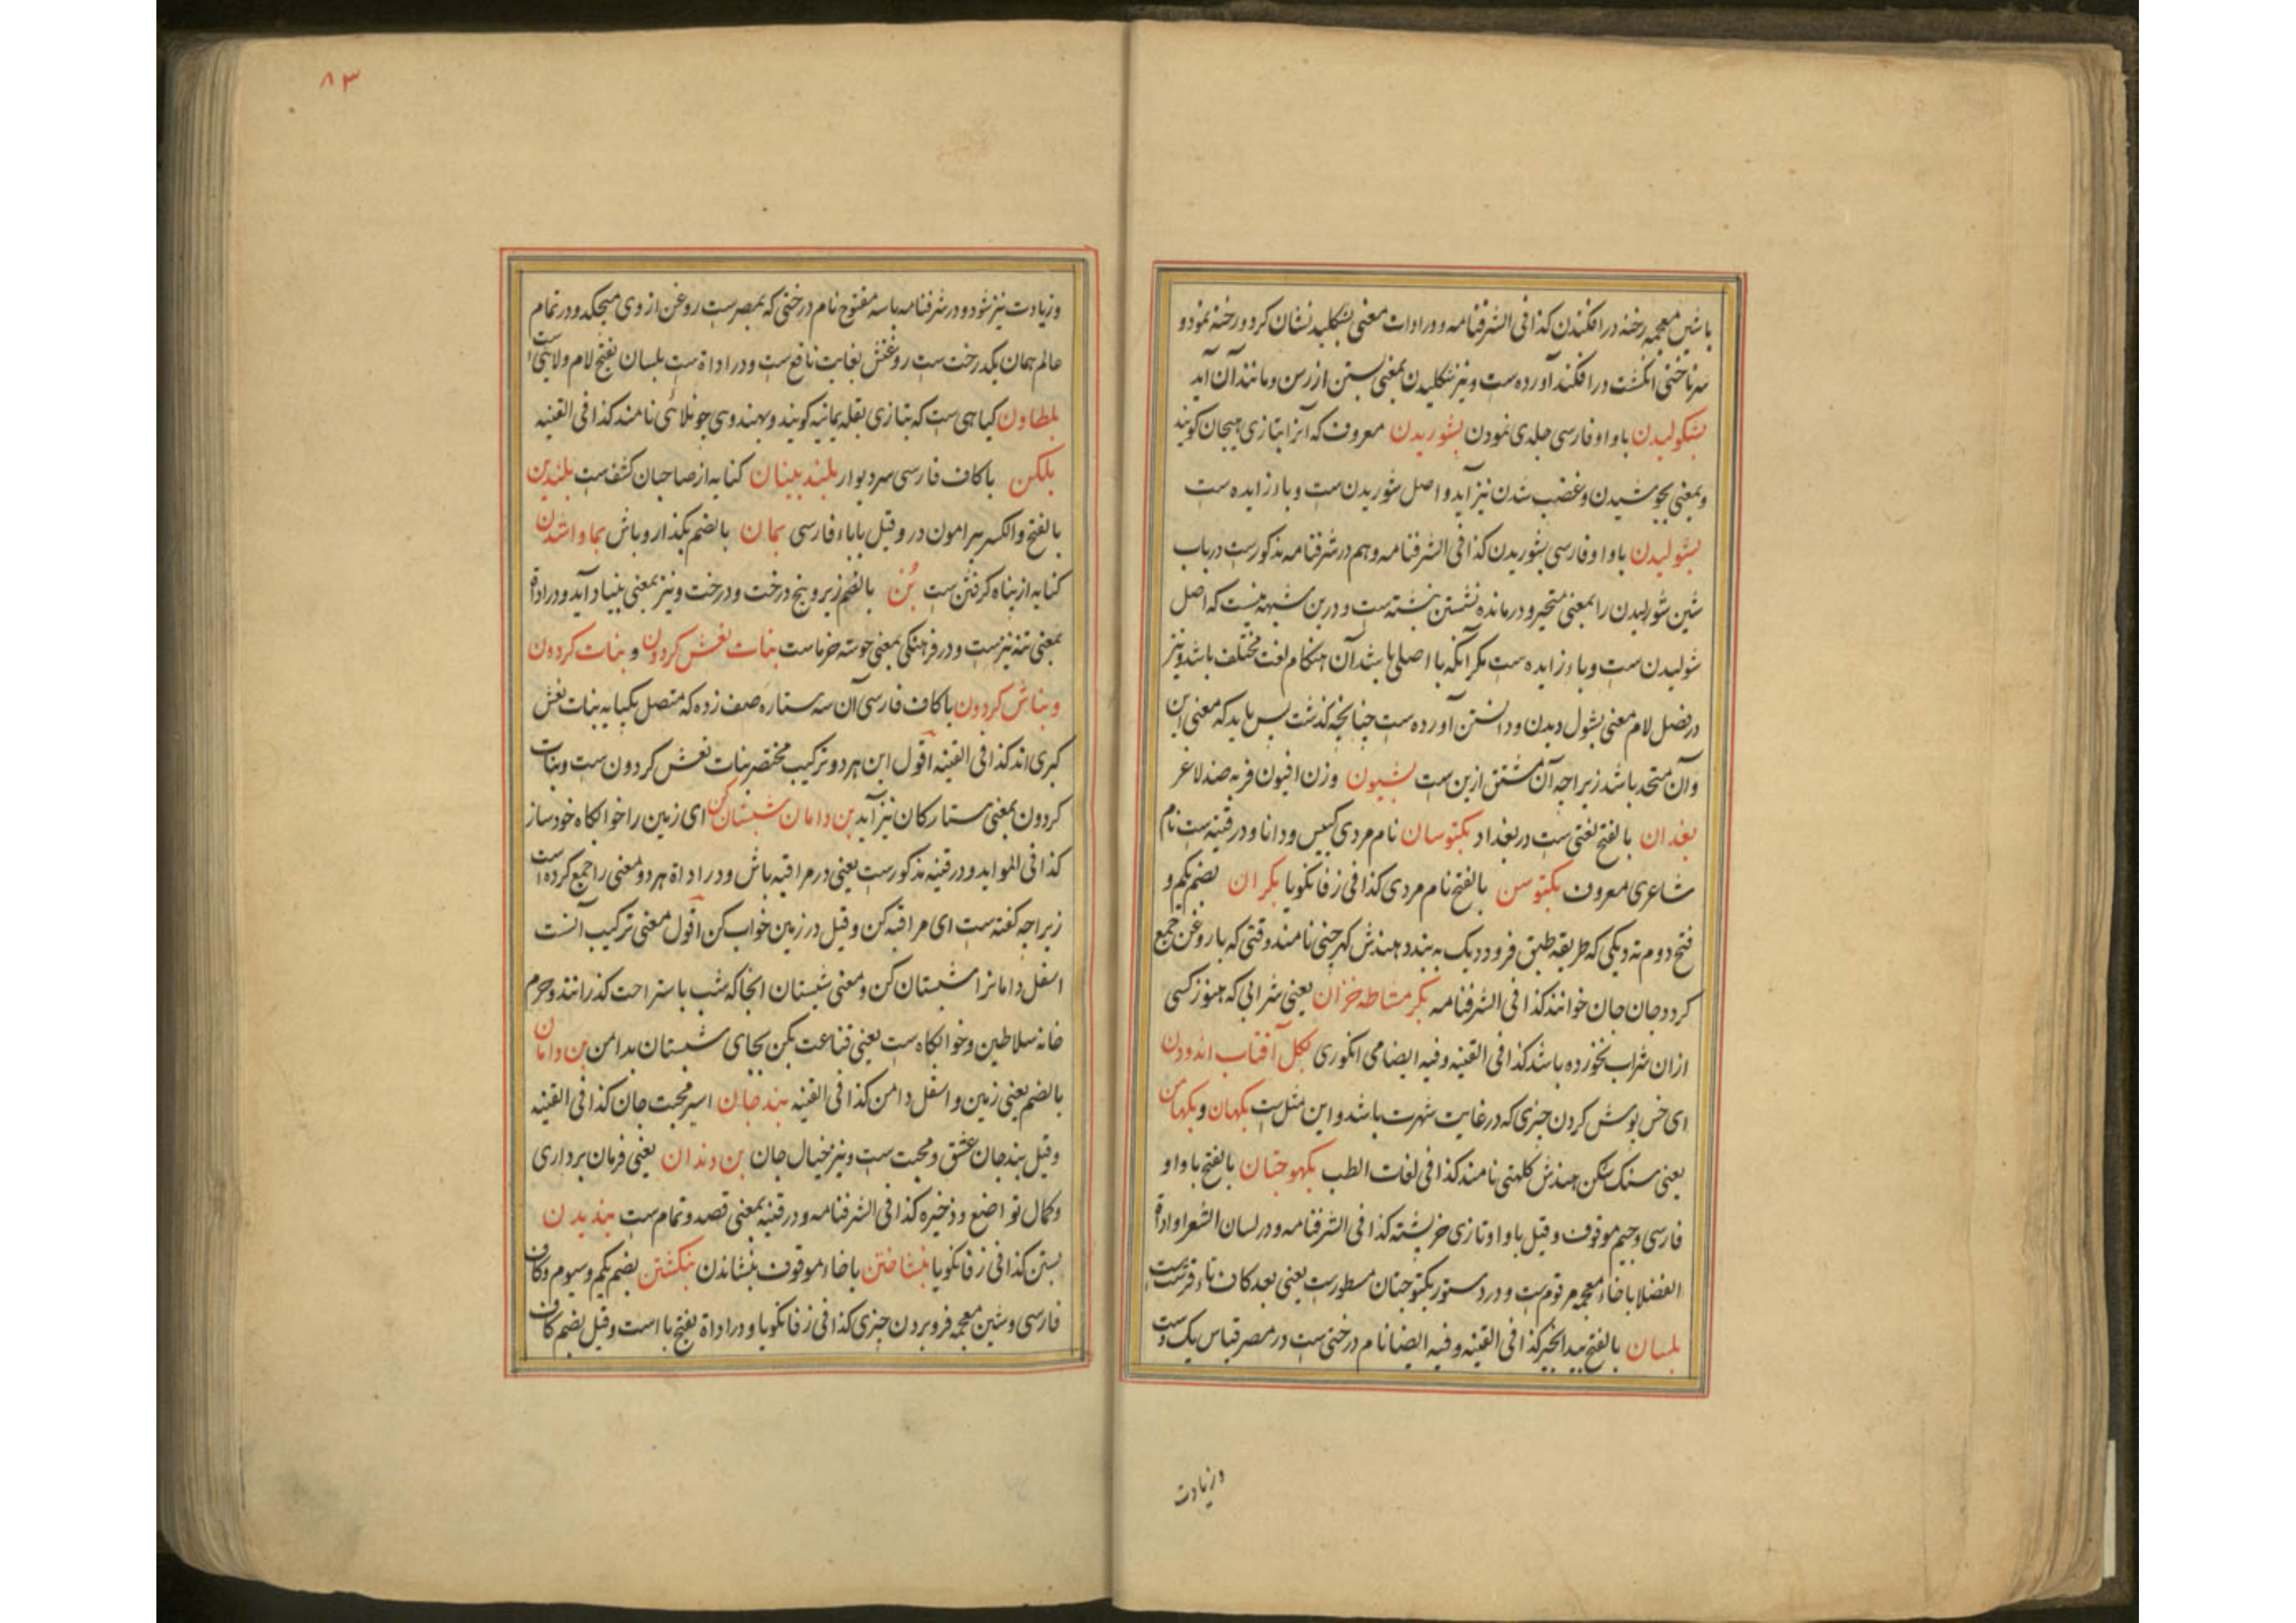 با شین معجمه رخنه در افکندن کذا فی الشرفنامه و در ادات معنی بشکلید نشان کرد و رخنه نمود و
سر ناخنی انگشت در افکند آورده ست و نیز شکلیدن بمعنی بستن از رسن و مانند آن آید
بشکولیدن با واو فارسی جلدی نمودن بشوریدن معروف که آنرا بتازی هیجان کویند
و بمعنی بجوشیدن و غضب شدن نیز آید و اصل شوریدن ست و باء زایده ست
بشولیدن با واو فارسی بشوریدن کذا فی الشرفنامه و هم در شرفنامه مذکورست در باب
شین شورلیدن را بمعنی متحیر و درمانده نشستن نبشته ست و درین شبهه نیست که اصل
شولیدن ست و باء زایده ست مکر آنکه با اصلی باشد آن هنکام لغت مختلف باشد و نیز
در فصل لام معنی بشول دیدن و دانستن آورده ست چنانچه کذشت پس باید که معنی این
و آن متحد باشد زیراچه آن مشتق ازین ست بشیون وزن افیون فربه ضد لاغر
بغدان بالفتح لغتی ست در بغداد بکتوسان نام مردی کییس و دانا و در قنیه ست نام
شاعری معروف بکتوسن بالفتح نام مردی کذا فی زفانکویا بکران بضم یکم و
فتح دوم ته دیکی که طریقه طبق فرود دیک به بندد هندش کهرچنی نامند وقتی که با روغن جمع
کرد و جان جان خوانند کذا فی الشرفنامه بکر مشاطه خزان یعنی شرابی که هنوز کسی
ازان شراب نخورده باشد کذا فی القنیه و فیه ایضا می انکوری بکل آفتاب اندودن
ای خس پوش کردن چیزی که در غایت شهرت باشد و این مثل ست بکهان و بکهامن
یعنی سنک شکن هندش کلهتی نامند کذا فی لغات الطب بکهوجنان بالفتح با واو
فارسی و جیم موقوف و قیل با واو تازی خریشته کذا فی الشرفنامه و در لسان الشعرا و اداة
الفضلا با خاء معجمه مرقوم ست و در دستور بکتوجنان مسطورست یعنی بعد کاف تاء قرشت ست
بلسان بالفتح بیدانجیر کذا فی القنیه و فیه ایضا نام درختی ست در مصر قیاس یک دست
وزیادت
۸۳
و زیادت نیز شود و در شرفنامه باسه مفتوح نام درختی که بمصرست روغن از وی میچکد و در تمام
عالم همان یکدرخت ست روغنش بغایت نافع ست و در اداة ست بلسان بفتح لام ولایتی ست
بلطاون کیاهی ست که بتازی بقله یمانیه کویند و بهندوی چونلائی نامند کذا فی القنیه
بلکن با کاف فارسی سر دیوار بلند بینان کنایه از صاحبان کشف ست بلندین
بالفتح والکسر پیرامون در و قیل با باء فارسی بمان بالضم بکذار و باش بماواشدن
کنایه از پناه کرفتن ست بُن بالضم زیر و بیخ درخت و درخت و نیز بمعنی بنیاد آید و در اداة
بمعنی تنه نیزست و در فرهنکی بمعنی خوشه خرماست بنات نعش کردون و بنات کردون
و بناش کردون با کاف فارسی آن سه ستاره صف زده که متصل یکپایه بنات نعش
کبری اند کذا فی القنیه اقول این هر دو ترکیب مختصر بنات نعش کردون ست و بنات
کردون بمعنی ستارکان نیز آید بن دامان شبستان کن ای زمین را خوابکاه خود ساز
کذا فی الموائد و در قنیه مذکورست یعنی در مراقبه باش و در اداة هر دو معنی را جمع کرده است
زیراچه کفته ست ای مراقبه کن و قیل در زمین خواب کن اقول معنی ترکیب آنست
اسفل دامانرا شبستان کن و معنی شبستان انجا که شب باستراحت کذرانند و حرم
خانه سلاطین و خوابکاه ست یعنی قناعت بکن بجای شبستان بدامن بن دامان
بالضم یعنی زمین و اسفل دامن کذا فی القنیه بند جان اسیر محبت جان کذا فی القنیه
و قیل بند جان عشق و محبت ست و نیز خیال جان بن دندان یعنی فرمان برداری
و کمال تواضع و ذخیره کذا فی الشرفنامه و در قنیه بمعنی قصد و تمام ست بندیدن
بستن کذا فی زفانکویا بنشاختن با خاء موقوف بنشاندن بنکشتن بضم یکم و سیوم و کاف
فارسی و شین معجمه فرو بردن چیزی کذا فی زفانکویا و در اداة بفتح با است و قیل بضم کاف